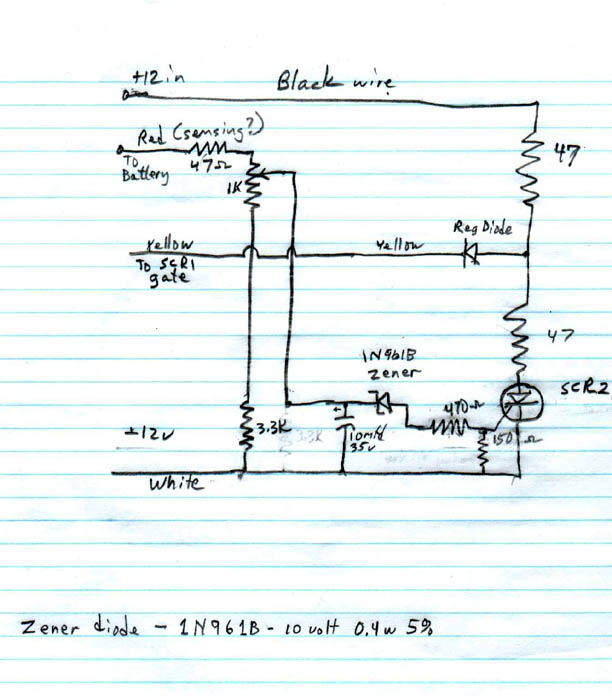 +12 in
Black wire
Red (sensing?)
To
Battery
47Ω
1K
47
Yellow
Yellow
Reg Diode
To SCR1
gate
47
1N961B
Zener
SCR2
470Ω
150 Ω
3.3K
3.3K
10mfd
35v
±12v
White
Zener diode - 1N961B - 10 volt 0.4w 5%